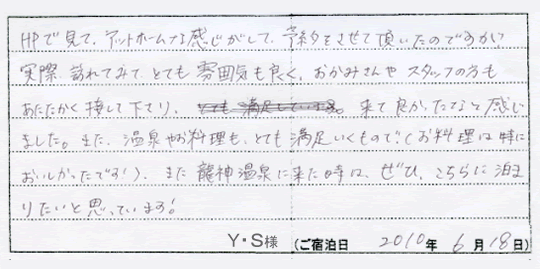 HPで見て、アットホームな感じがして、予約をさせて頂いたのですが、
実際 訪れてみて、とても 雰囲気も良く、おかみさんや スタッフの方も
あたたかく 接して 下さり、とても 満足しています。来て良かったなと感じ
ました。また、温泉やお料理も、とても 満足いくもので!(お料理は特に
おいしかったです!)、また 龍神温泉に来た時は、ぜひ、こちらに泊ま
りたいと思っています!
Y・S様 (ご宿泊日 2010年 6月18日)